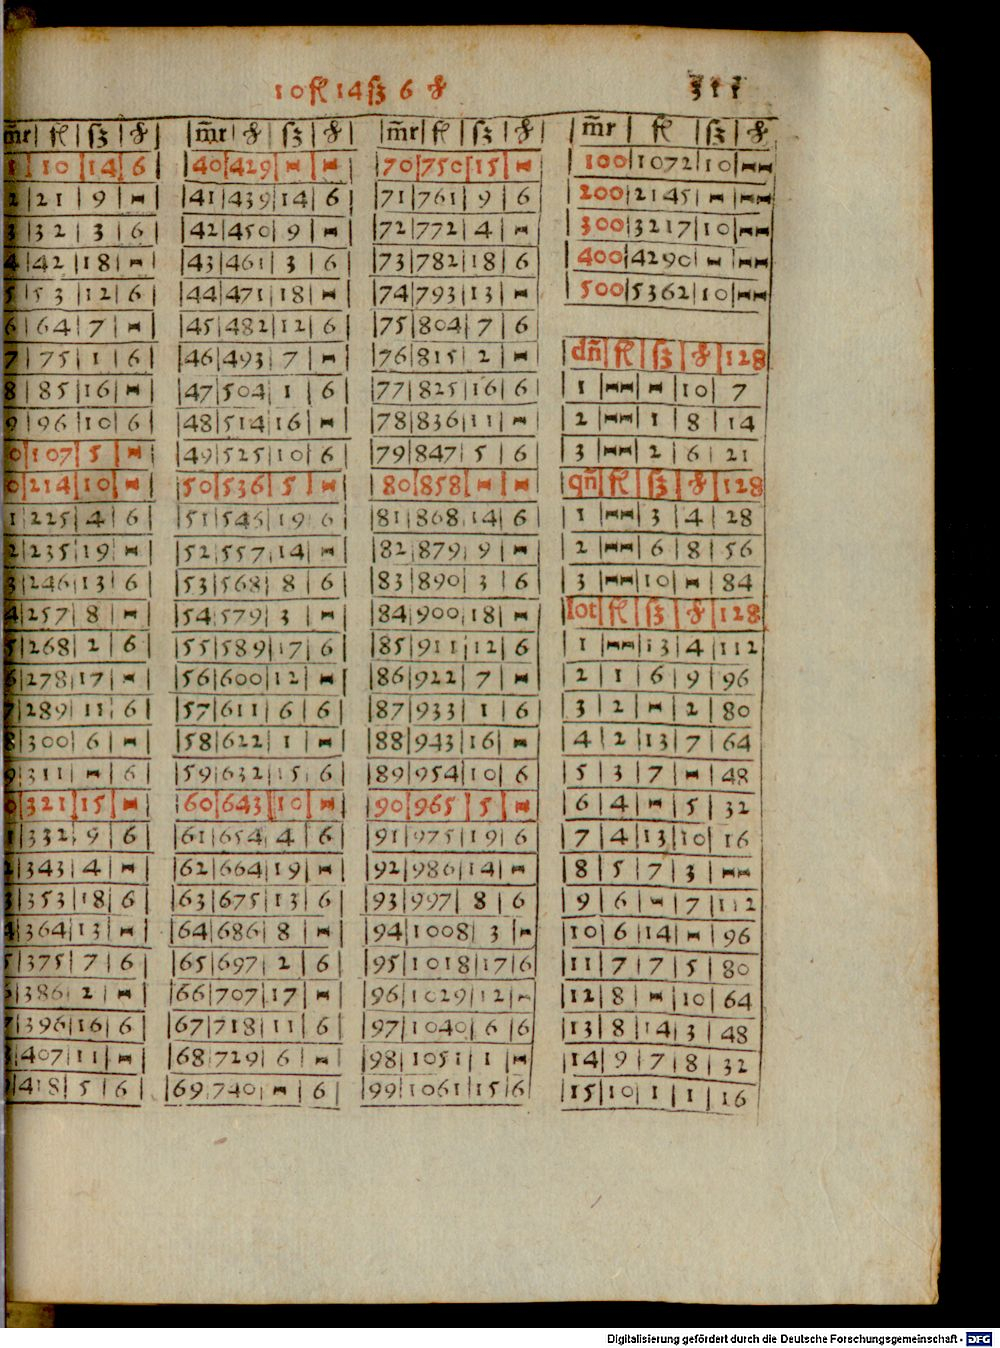 10 fl 14 ſʒ 6 ₰
311
m̃r | fl | ſʒ | ₰
1 | 10 | 14 | 6
2 | 21 | 9 | -
3 | 32 | 3 | 6
4 | 42 | 18 | -
5 | 53 | 12 | 6
6 | 64 | 7 | -
7 | 75 | 1 | 6
8 | 85 | 16 | -
9 | 96 | 10 | 6
0 | 107 | 5 | -
0 | 214 | 10 | -
1 | 225 | 4 | 6
2 | 235 | 19 | -
3 | 246 | 13 | 6
4 | 257 | 8 | -
5 | 268 | 2 | 6
6 | 278 | 17 | -
7 | 289 | 11 | 6
8 | 300 | 6 | -
9 | 311 | - | 6
0 | 321 | 15 | -
1 | 332 | 9 | 6
2 | 343 | 4 | -
3 | 353 | 18 | 6
4 | 364 | 13 | -
5 | 375 | 7 | 6
6 | 386 | 2 | -
7 | 396 | 16 | 6
8 | 407 | 11 | -
9 | 418 | 5 | 6
m̃r | ₰ | ſʒ | ₰
40 | 429 | - | -
41 | 439 | 14 | 6
42 | 450 | 9 | -
43 | 461 | 3 | 6
44 | 471 | 18 | -
45 | 482 | 12 | 6
46 | 493 | 7 | -
47 | 504 | 1 | 6
48 | 514 | 16 | -
49 | 525 | 10 | 6
50 | 536 | 5 | -
51 | 546 | 19 | 6
52 | 557 | 14 | -
53 | 568 | 8 | 6
54 | 579 | 3 | -
55 | 589 | 17 | 6
56 | 600 | 12 | -
57 | 611 | 6 | 6
58 | 622 | 1 | -
59 | 632 | 15 | 6
60 | 643 | 10 | -
61 | 654 | 4 | 6
62 | 664 | 19 | -
63 | 675 | 13 | 6
64 | 686 | 8 | -
65 | 697 | 2 | 6
66 | 707 | 17 | -
67 | 718 | 11 | 6
68 | 729 | 6 | -
69 | 740 | - | 6
m̃r | fl | ſʒ | ₰
70 | 750 | 15 | -
71 | 761 | 9 | 6
72 | 772 | 4 | -
73 | 782 | 18 | 6
74 | 793 | 13 | -
75 | 804 | 7 | 6
76 | 815 | 2 | -
77 | 825 | 16 | 6
78 | 836 | 11 | -
79 | 847 | 5 | 6
80 | 858 | - | -
81 | 868 | 14 | 6
82 | 879 | 9 | -
83 | 890 | 3 | 6
84 | 900 | 18 | -
85 | 911 | 12 | 6
86 | 922 | 7 | -
87 | 933 | 1 | 6
88 | 943 | 16 | -
89 | 954 | 10 | 6
90 | 965 | 5 | -
91 | 975 | 19 | 6
92 | 986 | 14 | -
93 | 997 | 8 | 6
94 | 1008 | 3 | -
95 | 1018 | 17 | 6
96 | 1029 | 12 | -
97 | 1040 | 6 | 6
98 | 1051 | 1 | -
99 | 1061 | 15 | 6
m̃r | fl | ſʒ | ₰
100 | 1072 | 10 | --
200 | 2145 | - | --
300 | 3217 | 10 | --
400 | 4290 | - | --
500 | 5362 | 10 | --
dñ | fl | ſʒ | ₰ | 128
1 | -- | - | 10 | 7
2 | -- | 1 | 8 | 14
3 | -- | 2 | 6 | 21
qñ | fl | ſʒ | ₰ | 128
1 | -- | 3 | 4 | 28
2 | -- | 6 | 8 | 56
3 | -- | 10 | - | 84
lot | fl | ſʒ | ₰ | 128
1 | -- | 13 | 4 | 112
2 | 1 | 6 | 9 | 96
3 | 2 | - | 2 | 80
4 | 2 | 13 | 7 | 64
5 | 3 | 7 | - | 48
6 | 4 | - | 5 | 32
7 | 4 | 13 | 10 | 16
8 | 5 | 7 | 3 | --
9 | 6 | - | 7 | 112
10 | 6 | 14 | - | 96
11 | 7 | 7 | 5 | 80
12 | 8 | - | 10 | 64
13 | 8 | 14 | 3 | 48
14 | 9 | 7 | 8 | 32
15 | 10 | 1 | 1 | 16
Digitalisierung gefördert durch die Deutsche Forschungsgemeinschaft - DFG